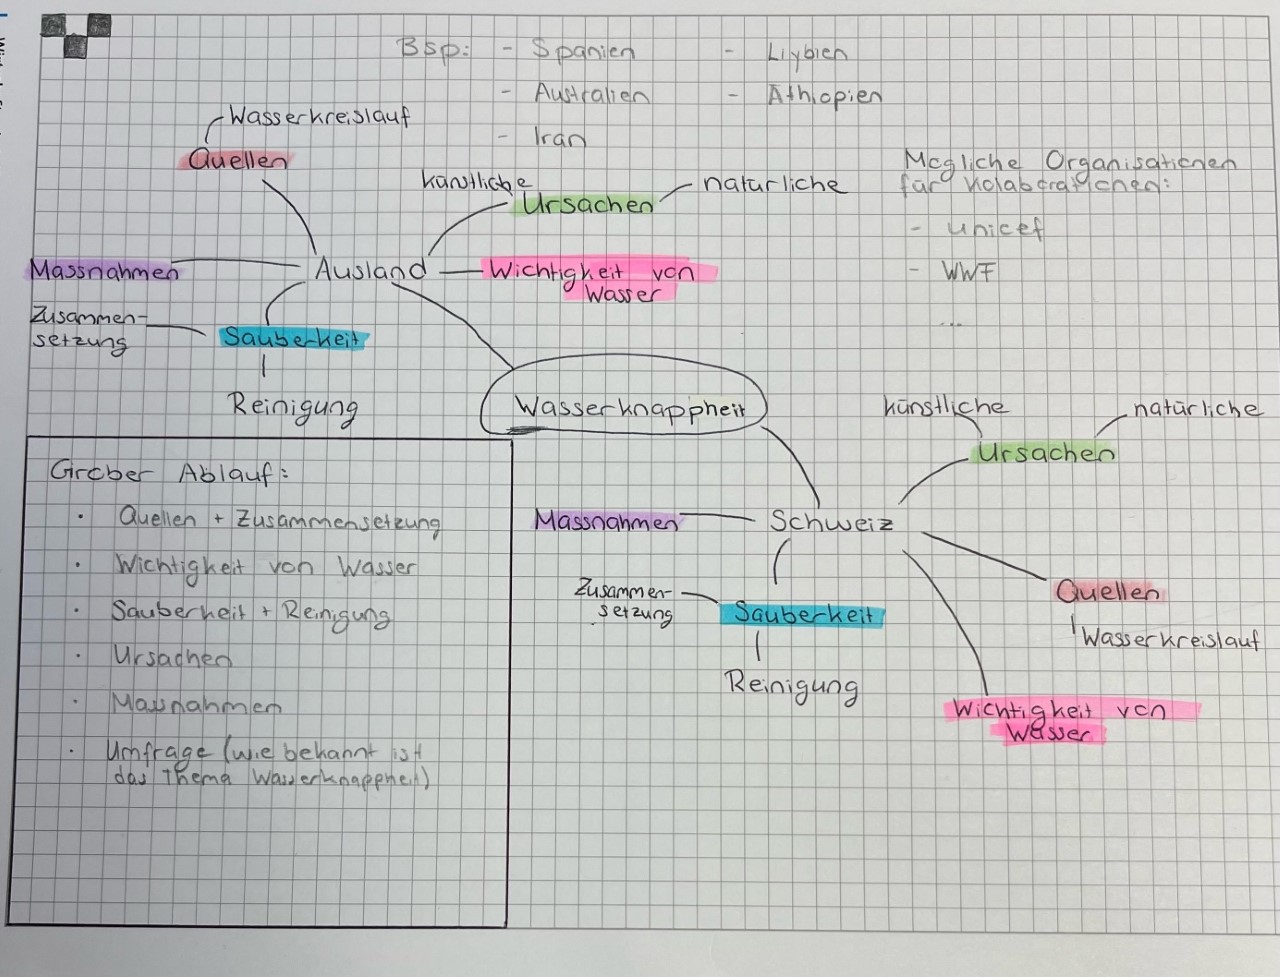 Bsp: - Spanien - Liybien
- Australien - Äthiopien
- Iran
Wasserkreislauf
Quellen
künstliche
natürliche
Ursachen
Mögliche Organisationen
für Kolaborationen:
- unicef
- WWF
...
Massnahmen
Ausland
Wichtigkeit von
Wasser
Zusammen-
setzung
Sauberkeit
Reinigung
Wasserknappheit
künstliche
natürliche
Ursachen
Massnahmen
Schweiz
Zusammen-
setzung
Sauberkeit
Reinigung
Quellen
Wasserkreislauf
Wichtigkeit von
Wasser
Grober Ablauf:
· Quellen + Zusammensetzung
· Wichtigkeit von Wasser
· Sauberkeit + Reinigung
· Ursachen
· Massnahmen
· Umfrage (wie bekannt ist
das Thema Wasserknappheit)